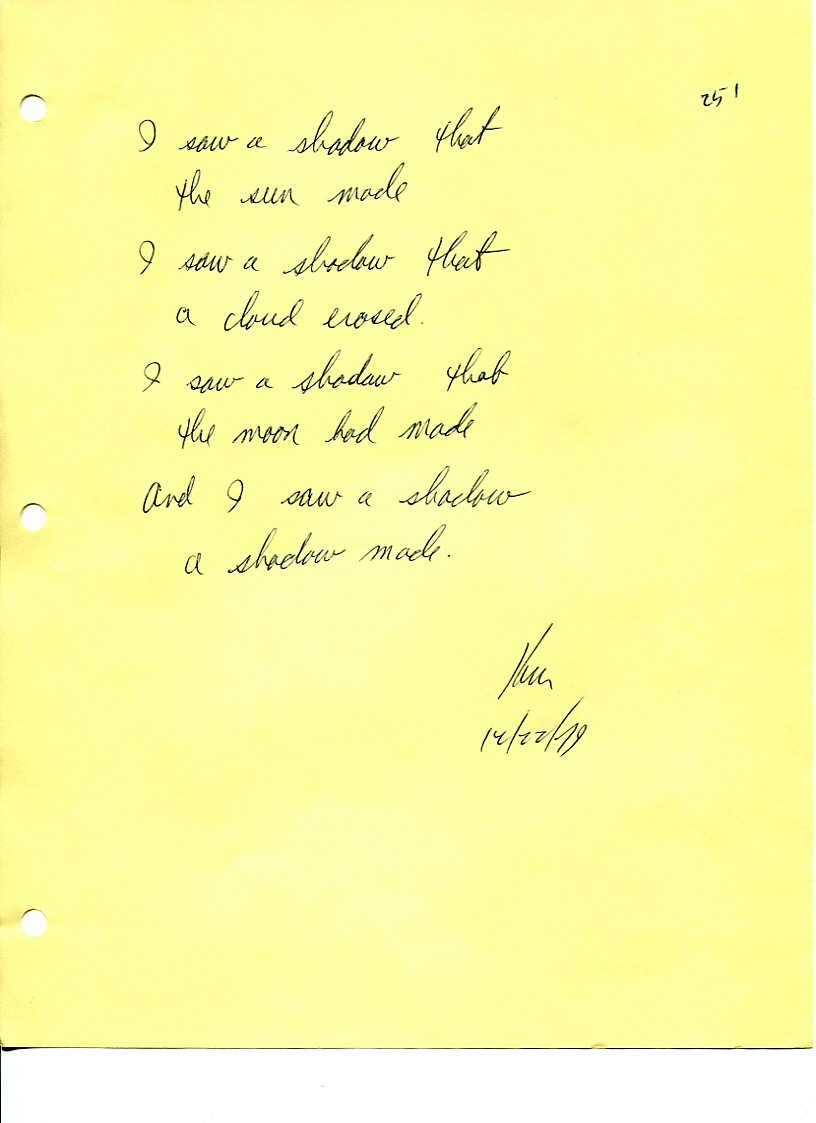 251
I saw a shadow that
the sun made
I saw a shadow that
a cloud erased.
I saw a shadow that
the moon had made
And I saw a shadow
a shadow made.
12/22/79